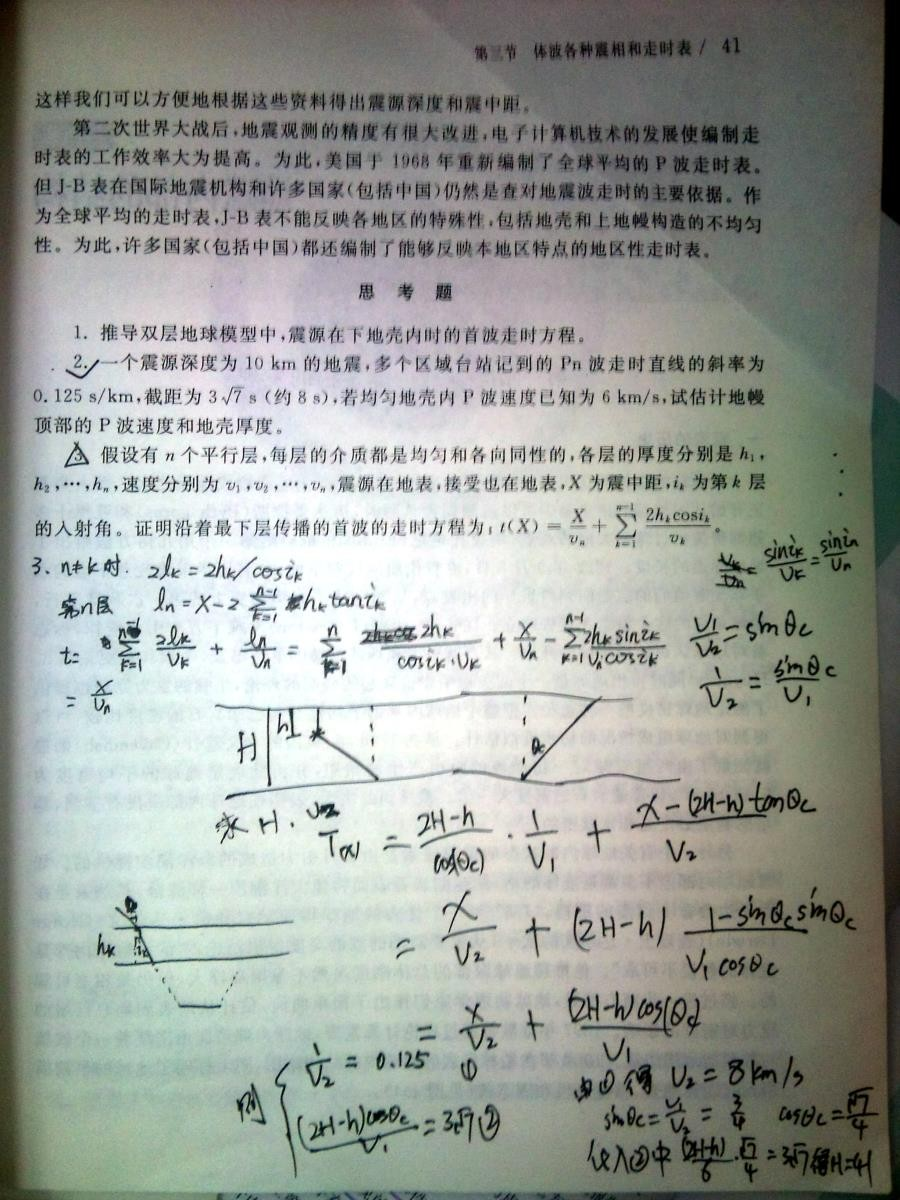 第三节 体波各种震相和走时表 / 41
这样我们可以方便地根据这些资料得出震源深度和震中距。
第二次世界大战后,地震观测的精度有很大改进,电子计算机技术的发展使编制走
时表的工作效率大为提高。为此,美国于 1968 年重新编制了全球平均的 P 波走时表。
但 J-B 表在国际地震机构和许多国家(包括中国)仍然是查对地震波走时的主要依据。作
为全球平均的走时表,J-B 表不能反映各地区的特殊性,包括地壳和上地幔构造的不均匀
性。为此,许多国家(包括中国)都还编制了能够反映本地区特点的地区性走时表。
思 考 题
1. 推导双层地球模型中,震源在下地壳内时的首波走时方程。
2. 一个震源深度为 10 km 的地震,多个区域台站记到的 Pn 波走时直线的斜率为
0.125 s/km,截距为 3√7 s (约 8 s),若均匀地壳内 P 波速度已知为 6 km/s,试估计地幔
顶部的 P 波速度和地壳厚度。
3. 假设有 n 个平行层,每层的介质都是均匀和各向同性的,各层的厚度分别是 h₁,
h₂,…,hₙ,速度分别为 v₁,v₂,…,vₙ,震源在地表,接受也在地表,X 为震中距,iₖ 为第 k 层
的入射角。证明沿着最下层传播的首波的走时方程为:t(X) = X/vₙ + Σ_{k=1}^{n-1} 2hₖcosiₖ/vₖ。
3、n≠k时. 2lₖ = 2hₖ/cosiₖ
siniₖ/Vₖ = sin iₙ/Vₙ
第n层 lₙ = X - 2 Σ_{k=1}^{n-1} hₖ taniₖ
t = Σ_{k=1}^{n-1} 2lₖ/Vₖ + lₙ/Vₙ = Σ_{k=1}^{n} 2hₖ/cosiₖ·Vₖ + X/Vₙ - Σ_{k=1}^{n-1} 2hₖ siniₖ/Vₙ cosiₖ
V₁/V₂ = sinθc
= X/Vₙ
1/V₂ = sinθc/V₁
H h
求 H. V₂
T(x) = 2H-h/cos(θc) · 1/V₁ + X-(2H-h)tanθc/V₂
hₖ iₖ
= X/V₂ + (2H-h) 1-sinθc sinθc/V₁ cosθc
= X/V₂ + (2H-h)cos(θc)/V₁
则 { 1/V₂ = 0.125 ①
(2H-h)cosθc/V₁ = 3√7 ②
由①得 V₂ = 8km/s
sinθc = V₁/V₂ = 3/4 cosθc = √7/4
代入②中 (2H-h)/6 · √7/4 = 3√7 得H=41